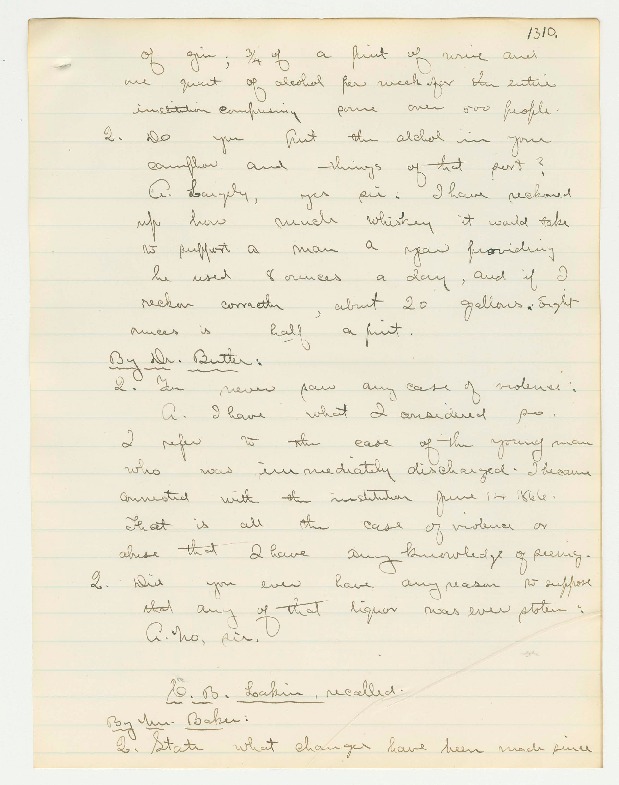 1310.
of gin; 3/4 of a pint of wine and
one quart of alcohol per week for the entire
institution comprising some over 500 people.
Q. Do you put the alchol in your
camphor and things of that sort?
A. Largely, yes sir. I have reckoned
up how much whiskey it would take
to support a man a year providing
he used 8 ounces a day, and if I
reckon correctly, about 20 gallons. Eight
ounces is half a pint.
By Dr. Butler:
Q. You never saw any case of violence:
A. I have what I considered so.
I refer to the case of the young man
who was immediately discharged. I became
connected with the institution June 1st 1866.
That is all the case of violence or
abuse that I have any knowledge of seeing.
Q. Did you ever have any reason to suppose
that any of that liquor was ever stolen:
A. No, sir.
B. Lakin, recalled.
By Mr. Baker:
Q. State what changes have been made since